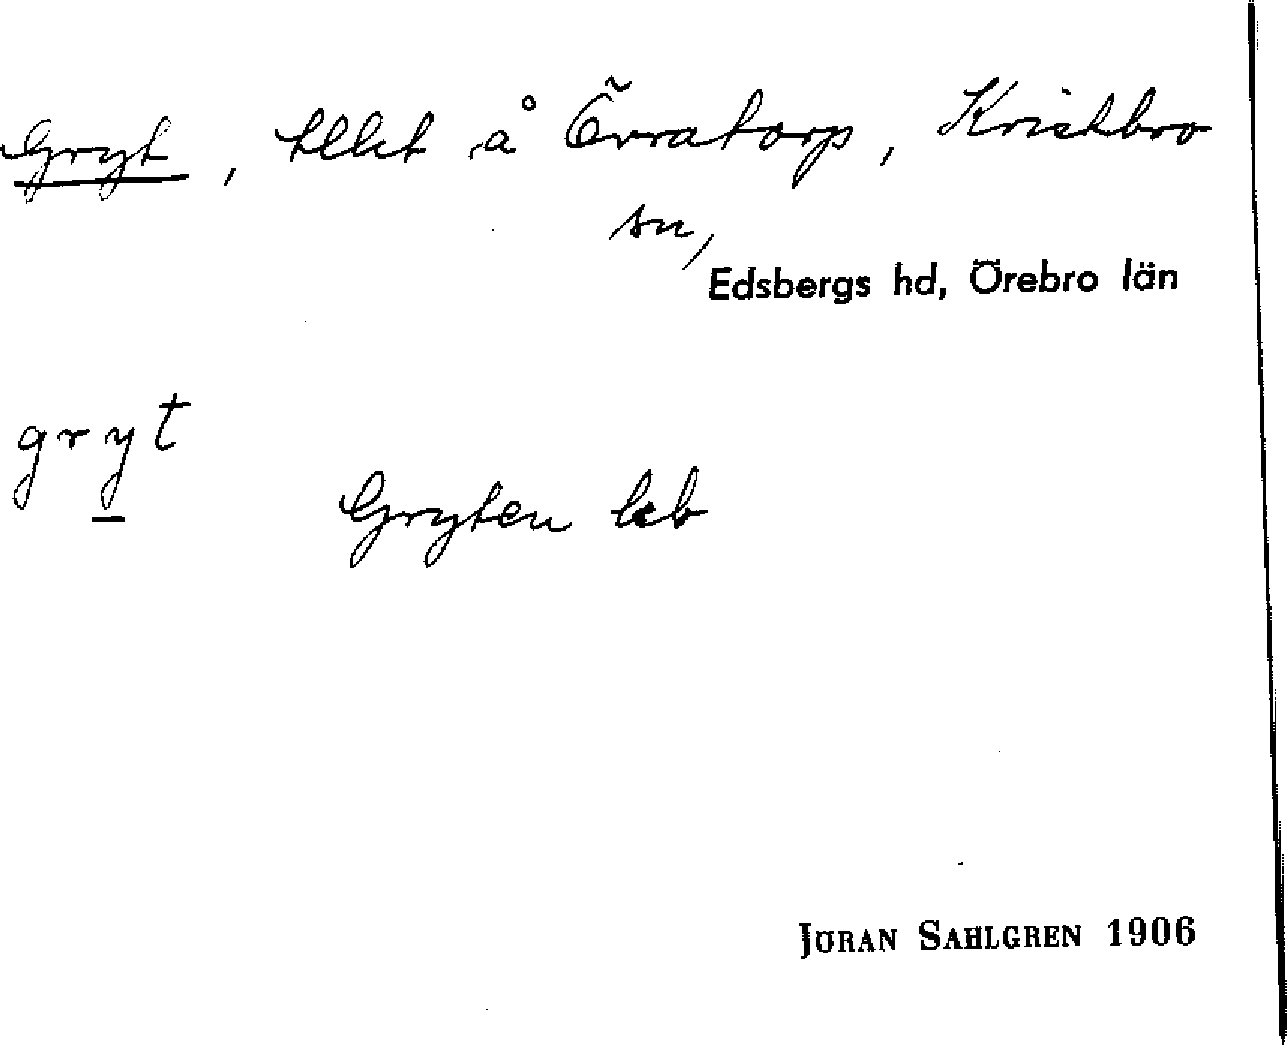 Gryt, tllht å Övratorp, Knistbro
sn,
Edsbergs hd, Örebro län
gryt
Gryten kb
JÖRAN SAHLGREN 1906